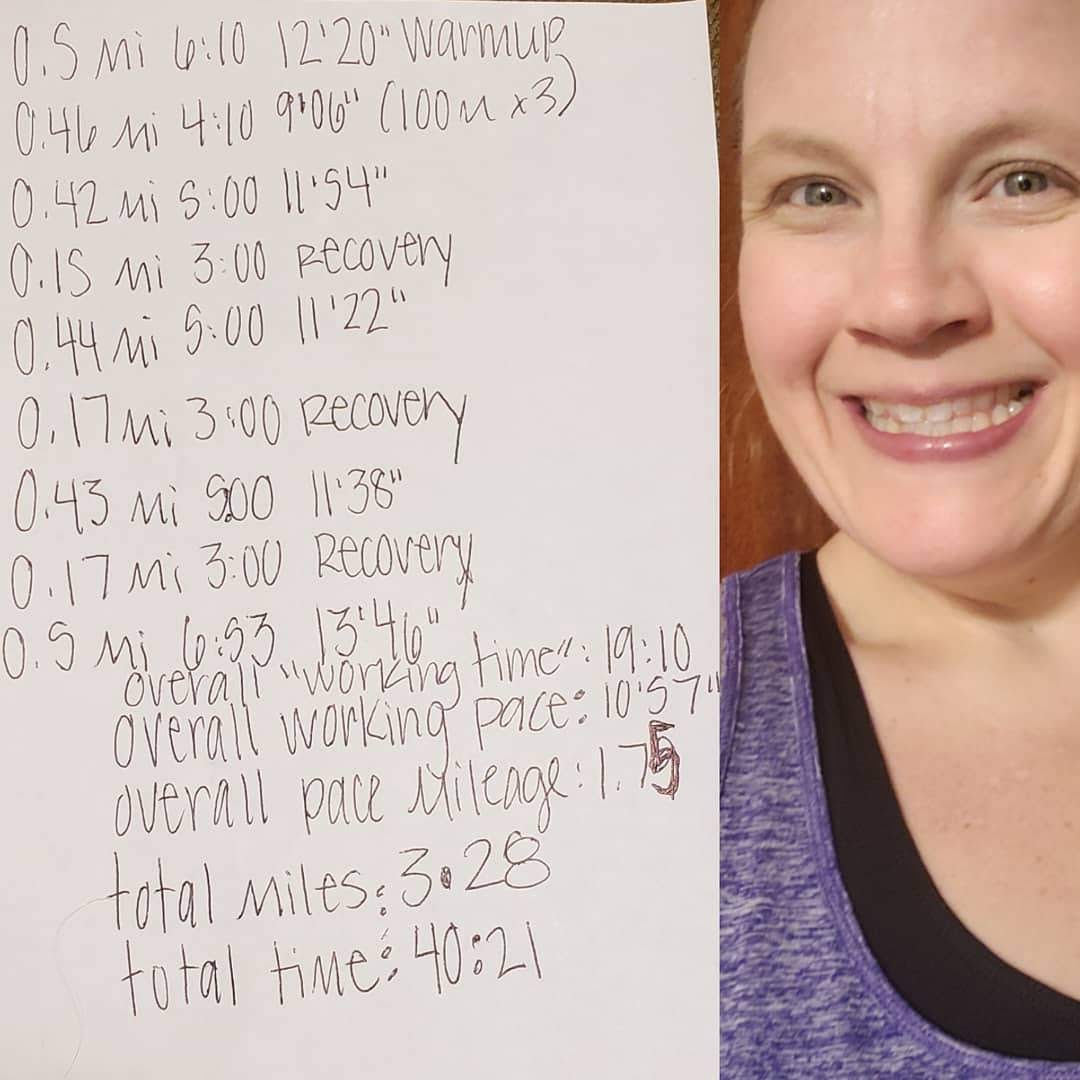 0.5 mi 6:10 12'20" warmup
0.46 mi 4:10 9'06" (100m x3)
0.42 mi 5:00 11'54"
0.15 mi 3:00 Recovery
0.44 mi 5:00 11'22"
0.17 mi 3:00 Recovery
0.43 mi 5:00 11'38"
0.17 mi 3:00 Recovery
0.5 mi 6:53 13'46"
overall "working time": 19:10
overall working pace: 10'57"
overall pace mileage: 1.75
total miles: 3.28
total time: 40:21